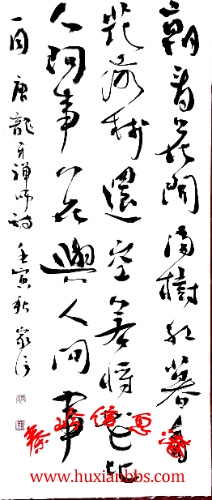 朝看花開滿樹紅暮看
花落树還空若將花比
人間事花與人間事
一同 唐龍牙禅師詩 壬寅秋
www.huxianbbs.com